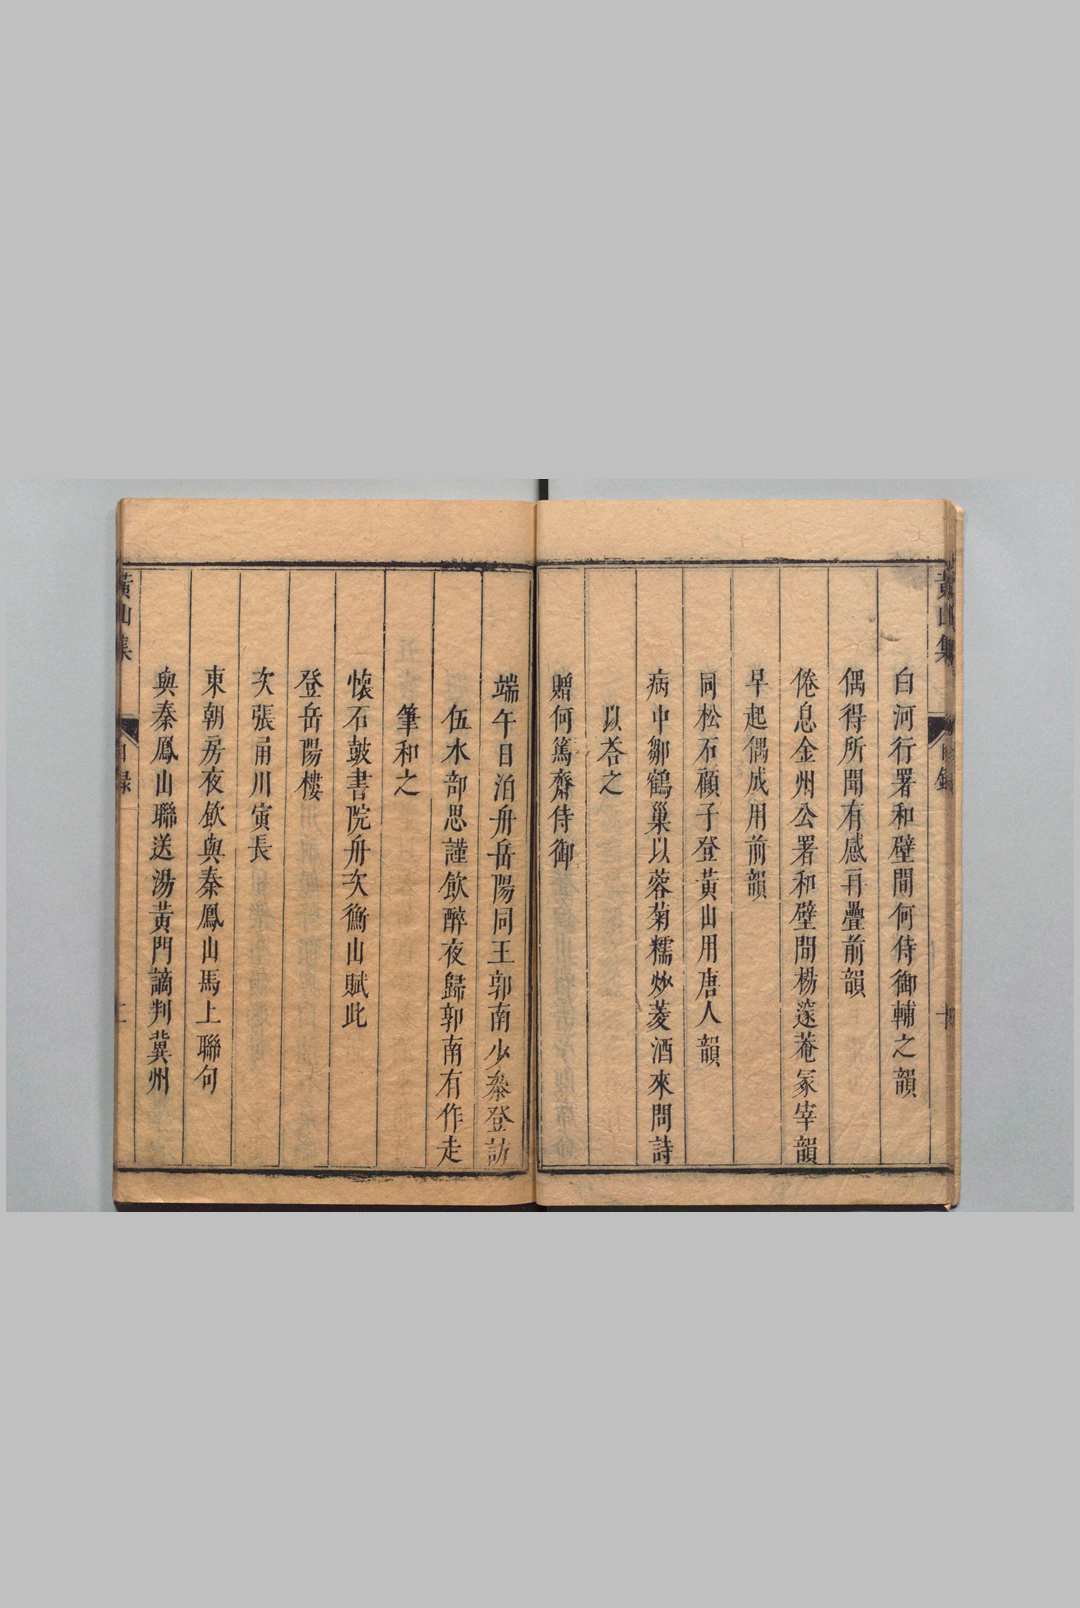 黃山集
目錄
白河行署和壁間何侍御輔之韻
偶得所聞有感再疊前韻
倦息金州公署和壁間楊邃菴冢宰韻
早起偶成用前韻
同松石顧子登黃山用唐人韻
病中鄒鶴巢以蓉菊糯炒菱酒來問詩
以荅之
贈何篤齋侍御
端午日泊舟岳陽同王郭南少叅登訪
伍水部思謹飲醉夜歸郭南有作走
筆和之
懷石鼓書院舟次衡山賦此
登岳陽樓
次張甬川寅長
東朝房夜飲與秦鳳山馬上聯句
與秦鳳山聯送湯黃門謫判冀州
黃山集
目錄